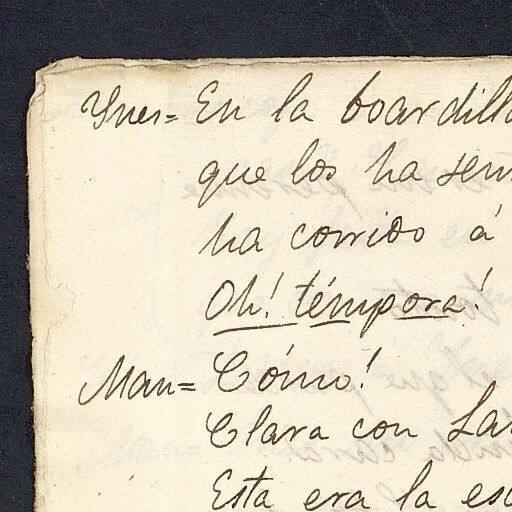 Ynes= En la boardilla
que los ha sen
ha corrido á
Oh! témpora!
Man= Cómo!
Clara con La
Esta era la es